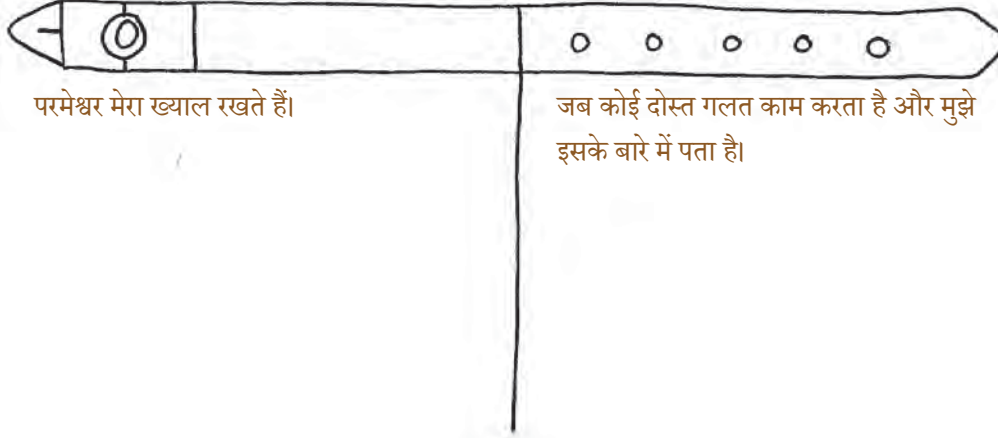 परमेश्वर मेरा ख्याल रखते हैं।
जब कोई दोस्त गलत काम करता है और मुझे
इसके बारे में पता है।